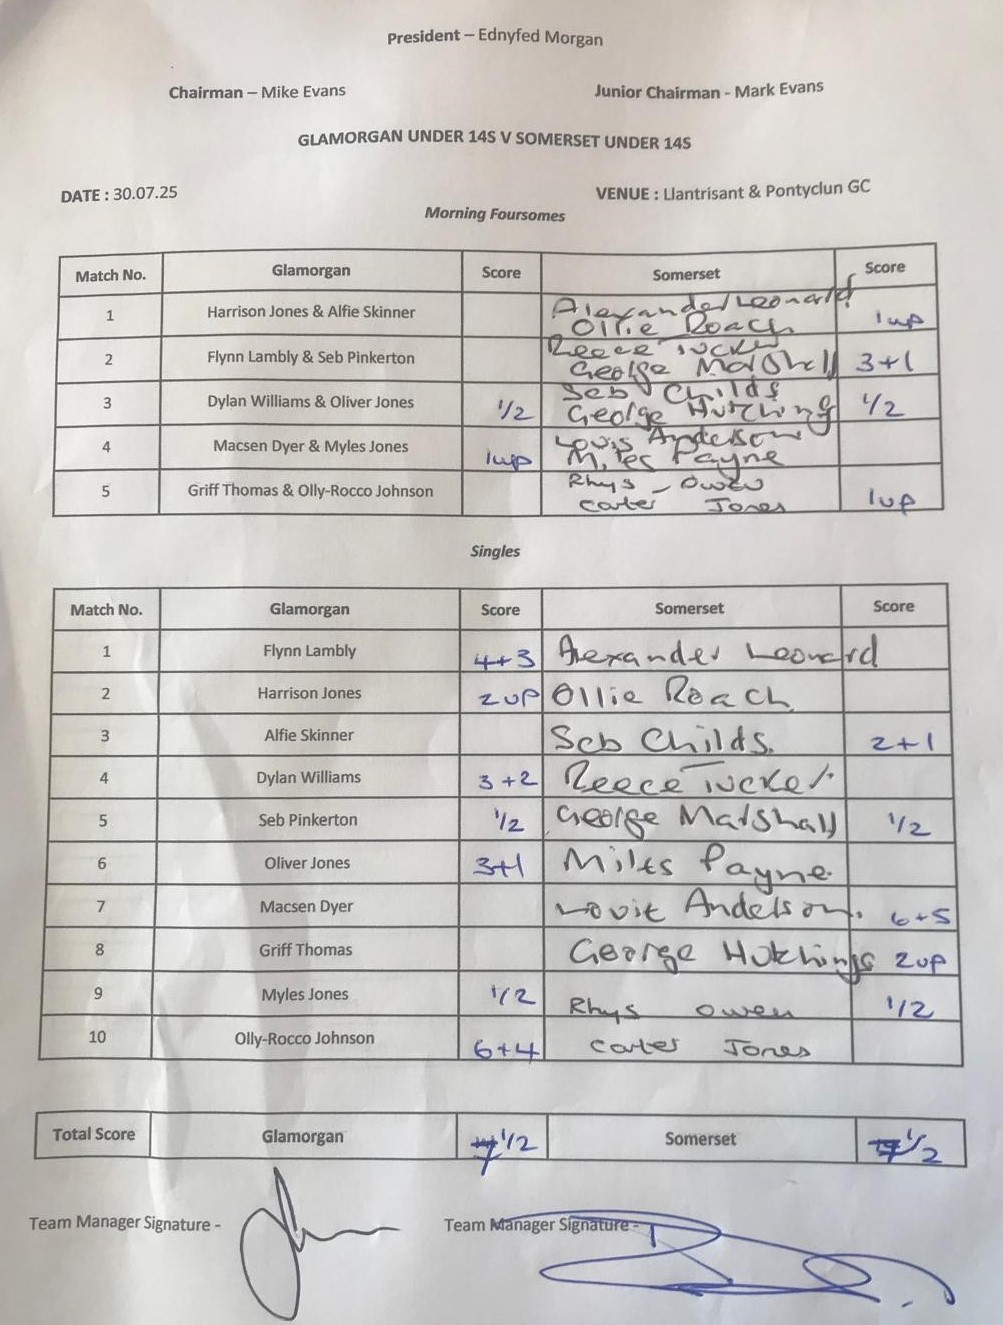 President – Ednyfed Morgan
Chairman – Mike Evans Junior Chairman - Mark Evans
GLAMORGAN UNDER 14S V SOMERSET UNDER 14S
DATE : 30.07.25 VENUE : Llantrisant & Pontyclun GC
Morning Foursomes
Match No. Glamorgan Score Somerset Score
1 Harrison Jones & Alfie Skinner Alexander Leonard
Ollie Roach 1up
2 Flynn Lambly & Seb Pinkerton Reece Tucker
George Marshall 3+1
3 Dylan Williams & Oliver Jones 1/2 Seb Childs
George Hutching 1/2
4 Macsen Dyer & Myles Jones 1up Louis Anderson
Miles Payne
5 Griff Thomas & Olly-Rocco Johnson Rhys - Owen
Carter Jones 1up
Singles
Match No. Glamorgan Score Somerset Score
1 Flynn Lambly 4+3 Alexander Leonard
2 Harrison Jones 2UP Ollie Roach
3 Alfie Skinner Seb Childs. 2+1
4 Dylan Williams 3+2 Reece Tucker
5 Seb Pinkerton 1/2 George Marshall 1/2
6 Oliver Jones 3+1 Miles Payne
7 Macsen Dyer Louie Anderson. 6+5
8 Griff Thomas George Hutchings 2up
9 Myles Jones 1/2 Rhys Owen 1/2
10 Olly-Rocco Johnson 6+4 Carter Jones
Total Score Glamorgan 7 1/2 Somerset 7 1/2
Team Manager Signature - Team Manager Signature -